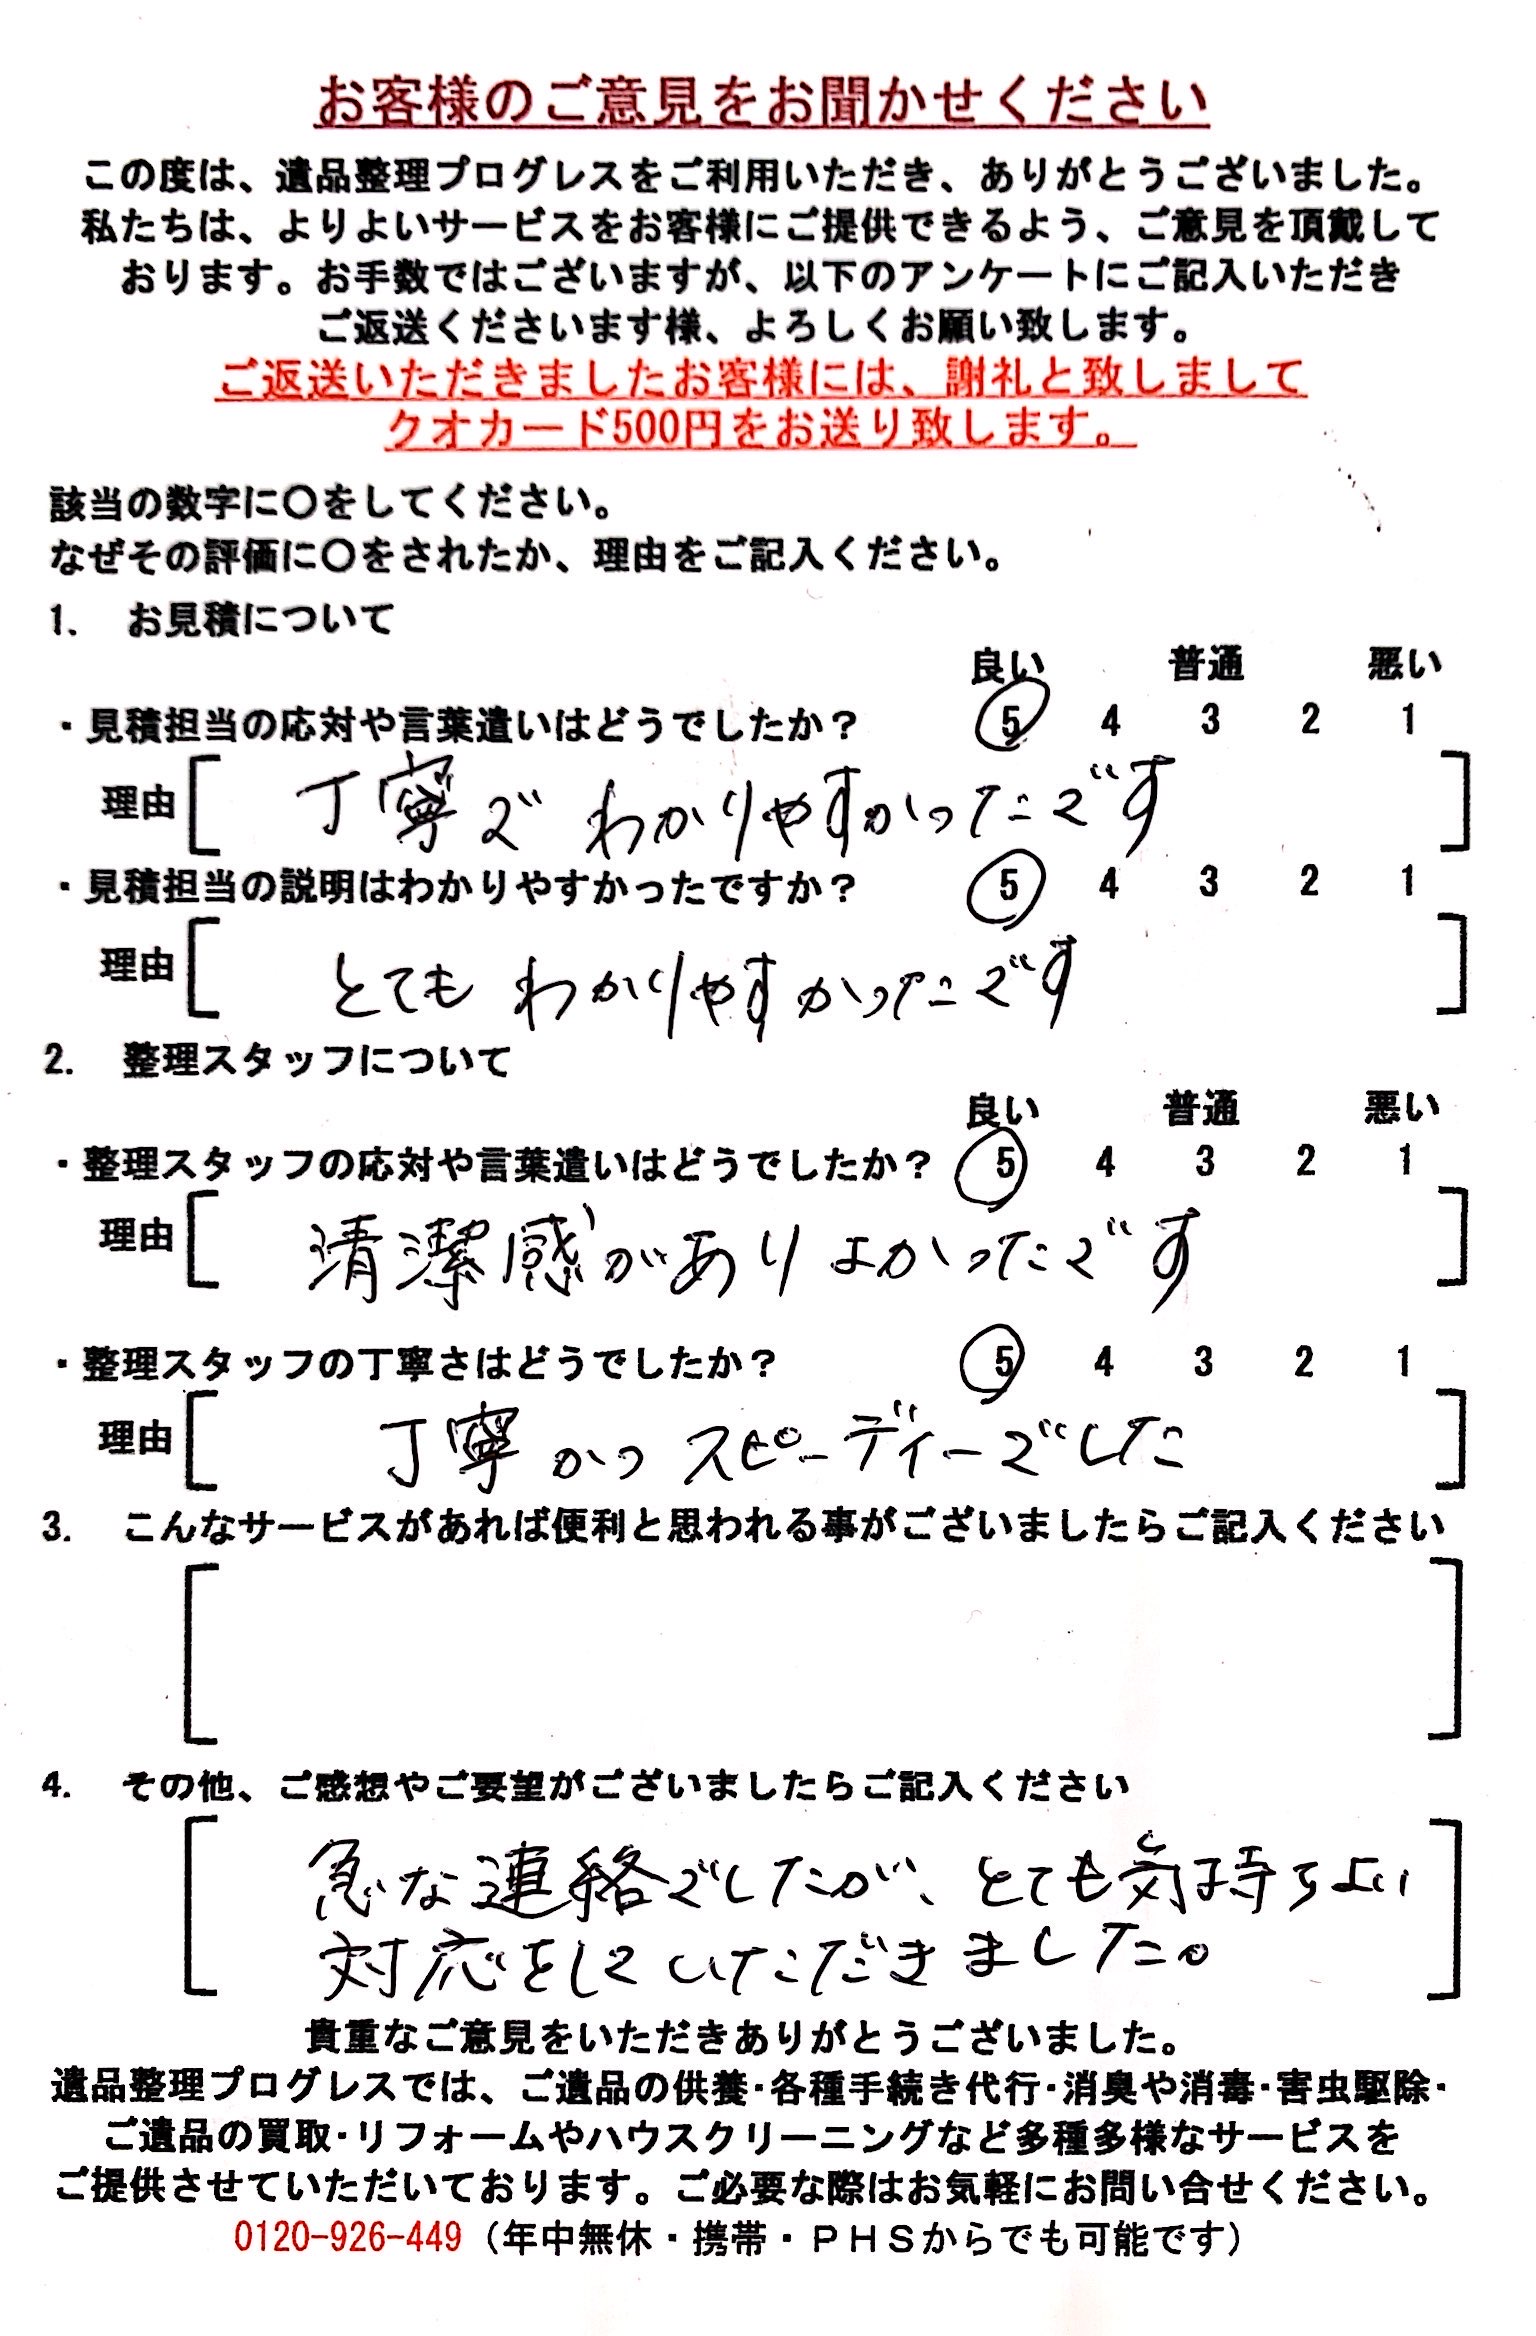 お客様のご意見をお聞かせください
この度は、遺品整理プログレスをご利用いただき、ありがとうございました。
私たちは、よりよいサービスをお客様にご提供できるよう、ご意見を頂戴して
おります。お手数ではございますが、以下のアンケートにご記入いただき
ご返送くださいます様、よろしくお願い致します。
ご返送いただきましたお客様には、謝礼と致しまして
クオカード500円をお送り致します。
該当の数字に〇をしてください。
なぜその評価に〇をされたか、理由をご記入ください。
1. お見積について
良い 普通 悪い
・見積担当の応対や言葉遣いはどうでしたか? 5 4 3 2 1
理由 [ 丁寧で わかりやすかったです ]
・見積担当の説明はわかりやすかったですか? 5 4 3 2 1
理由 [ とても わかりやすかったです ]
2. 整理スタッフについて
良い 普通 悪い
・整理スタッフの応対や言葉遣いはどうでしたか? 5 4 3 2 1
理由 [ 清潔感がありよかったです ]
・整理スタッフの丁寧さはどうでしたか? 5 4 3 2 1
理由 [ 丁寧かつ スピーディーでした ]
3. こんなサービスがあれば便利と思われる事がございましたらご記入ください
4. その他、ご感想やご要望がございましたらご記入ください
急な連絡でしたが、とても気持ちよい
対応をしていただきました。
貴重なご意見をいただきありがとうございました。
遺品整理プログレスでは、ご遺品の供養・各種手続き代行・消臭や消毒・害虫駆除・
ご遺品の買取・リフォームやハウスクリーニングなど多種多様なサービスを
ご提供させていただいております。ご必要な際はお気軽にお問い合せください。
0120-926-449（年中無休・携帯・PHSからでも可能です）